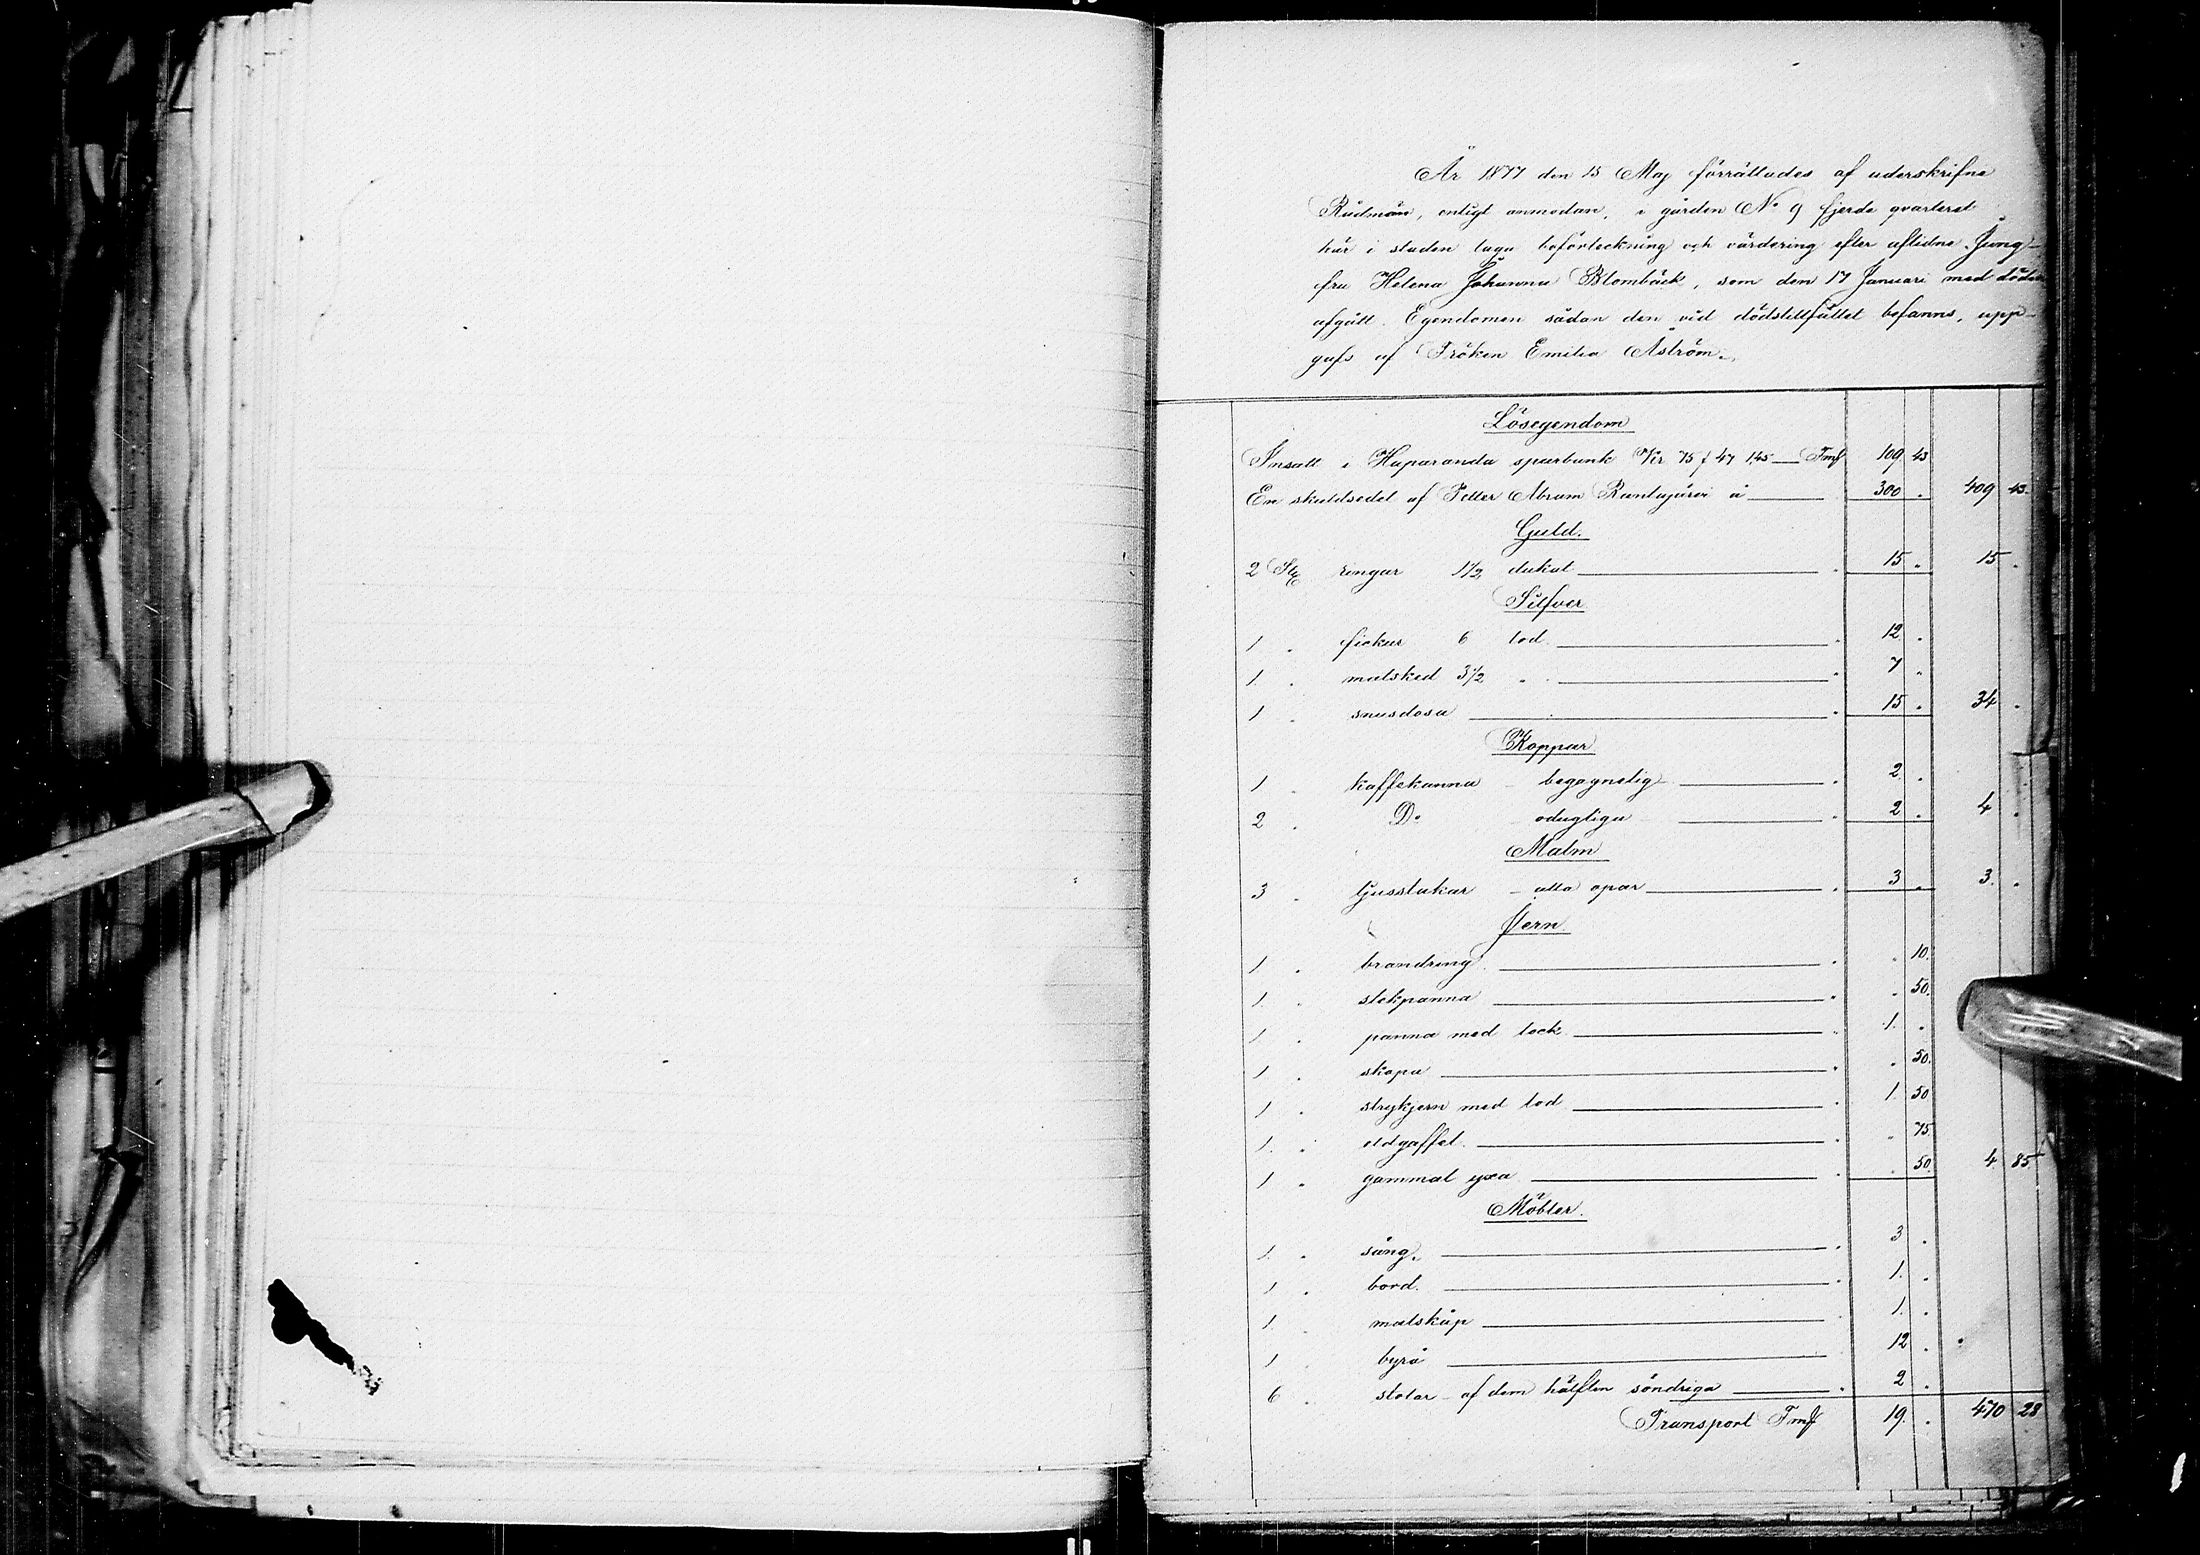 År 1877 den 15 Maj förrättades af uderskrifne
Rådmän, enligt anmodan, i gården No 9 fjerde qvarteret
här i staden laga boförteckning och värdering efter aflidne Jung-
fru Helena Johanna Blombäck, som den 17 Januari med döden
afgått. Egendomen sådan den vid dödstillfället befanns, upp-
gafs af Fröken Emilia Åström.
Lösegendom
Insatt i Haparanda sparbank Kr 75 f 47 1,45 — Fmf 109 43
En skuldsedel af Petter Abram Rantajärvi å 300 . 409 43.
Guld.
2 St. ringar 1 1/2 dukat " 15 " 15 .
Silfver
1 " fickur 6 lod " 12 "
1 " matsked 3 1/2 " " 7 "
1 " snusdosa " 15 " 34 .
Koppar
1 " kaffekanna - begagnelig " 2 "
2 " Do odugliga " 2 " 4 .
Malm
3 " ljusstakar - alla opar " 3 " 3. .
Jern
1 " brandring " " 10.
1 " stekpanna " " 50.
1 " panna med lock " 1. "
1 " skopa " " 50.
1 " strykjern med lod " 1. 50
1 " eldgaffel " " 75
1 " gammal yxa " " 50. 4 85
Möbler.
1 " säng. " 3 "
1 " bord. " 1. "
1 " matskåp " 1. "
1 " byrå 12 "
6 " stolar - af dem hälften söndriga " 2 "
Transport Fmf 19. " 470 28